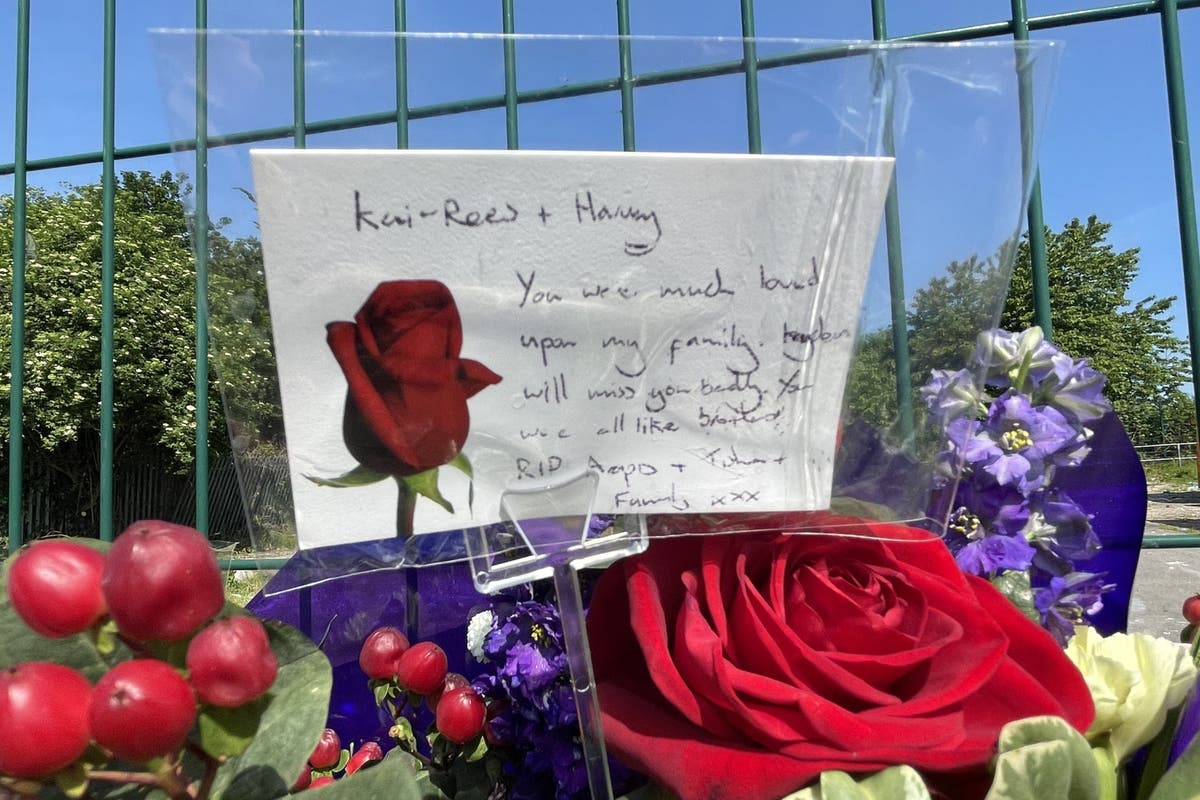 Kai-Rees + Harvey
You were much loved
upon my family.
will miss you badly. You
were all like brothers
RID +
Family xxx